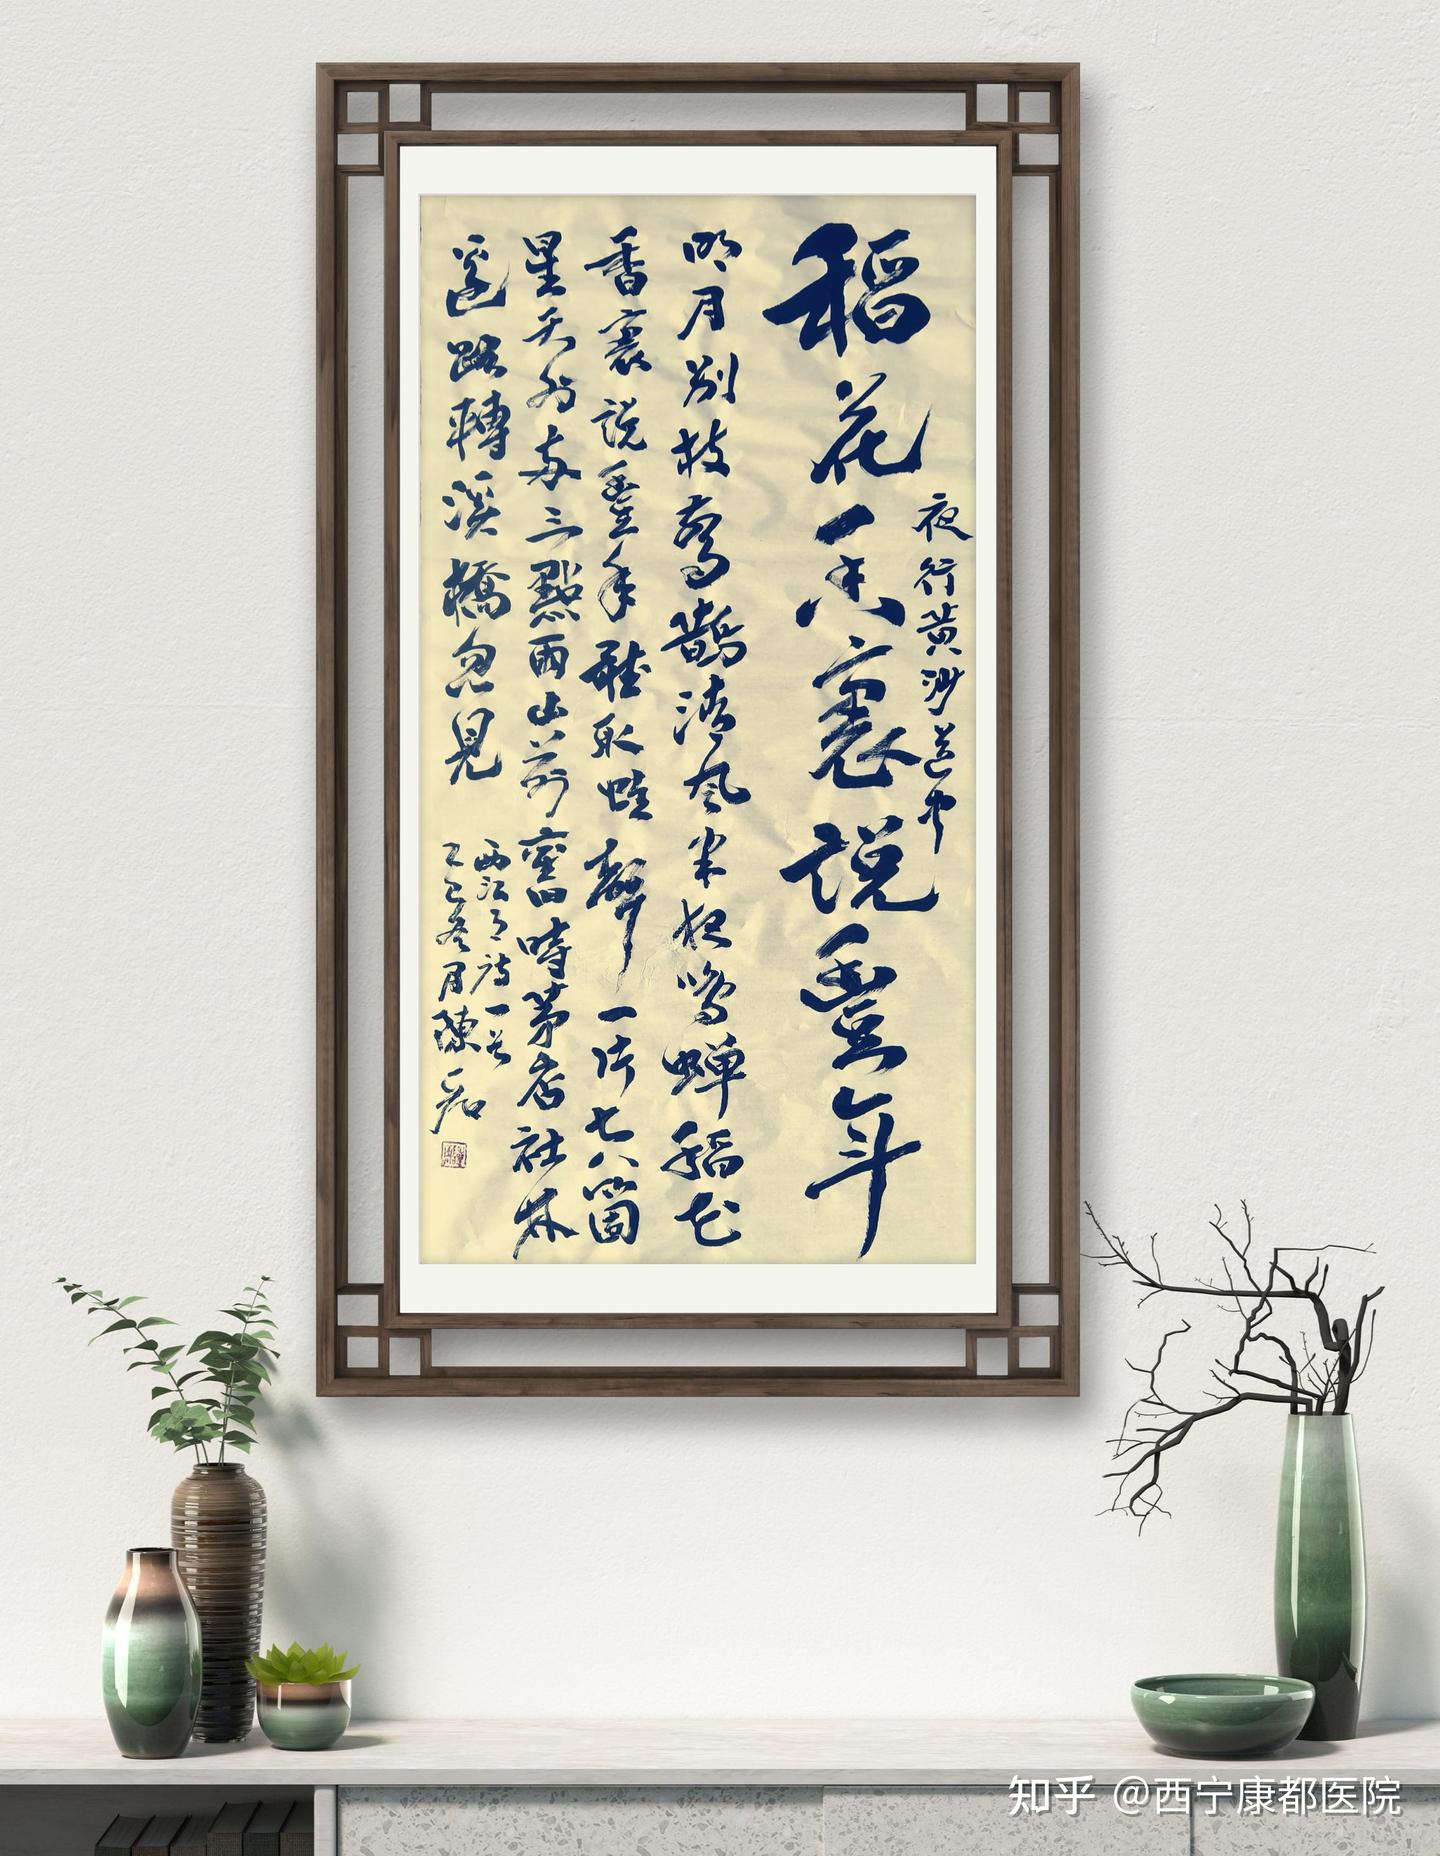 稻花香裏說豐年
夜行黃沙道中
明月別枝驚鵲清風半夜鳴蟬稻花
香裏說豐年聽取蛙聲一片七八箇
星天外兩三點雨山前舊時茅店社林
邊路轉溪橋忽見
西江月詩一首
乙巳冬月陳
知乎 @西宁康都医院